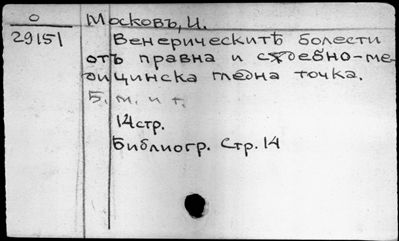 O
Московъ, И.
29151
Венерическитѣ болести
отъ правна и сѫдебно-ме-
дицинска гледна точка.
Б. м. и г.
14 стр.
Библиогр. Стр. 14